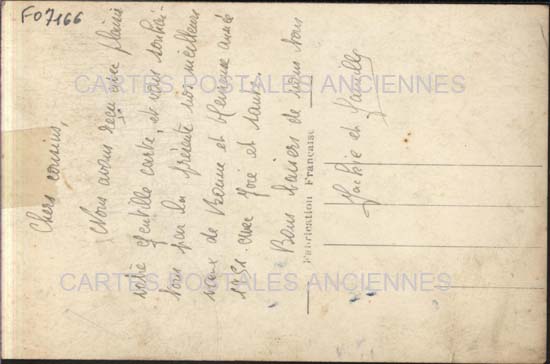 F07166
CARTES POSTALES ANCIENNES
CARTES POSTALES ANCIENNES
Chers cousins,
Nous avons reçu avec plaisir
votre gentille carte, et vous souhai-
tons par la présente nos meilleurs
vœux de Bonne et Heureuse année
1951 avec Joie et santé.
Bons baisers de nous tous
et famille
Fabrication Française